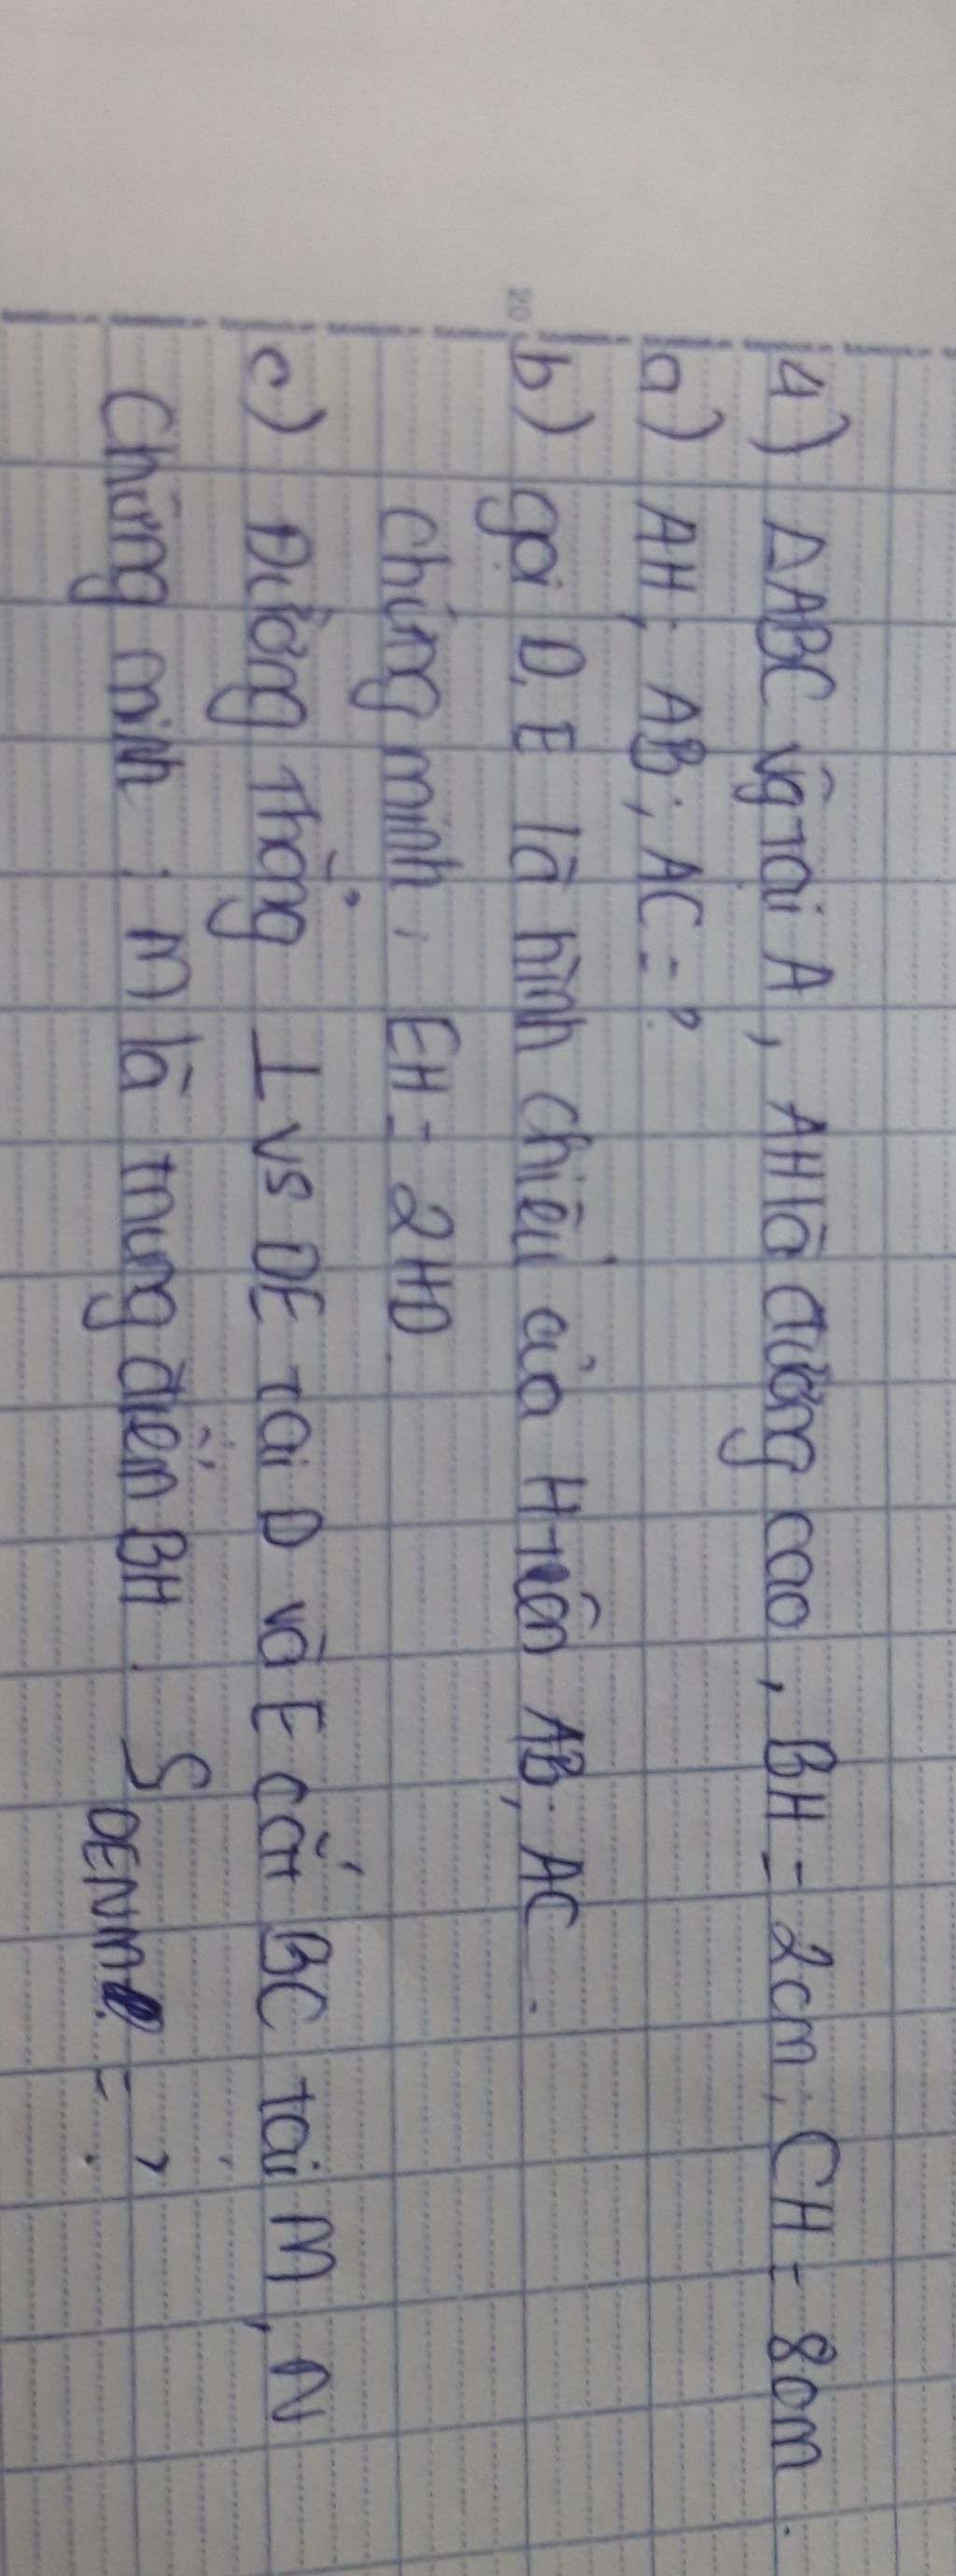 4) ΔABC vg tại A, AH là đường cao, BH = 2cm; CH = 8cm.
a) AH; AB; AC = ?
20
b) gọi D, E là hình chiếu của H trên AB; AC.
Chứng minh: EH = 2HD.
c) Đường thẳng ⊥ vs DE tại D và E cắt BC tại M, N
Chứng minh: M là trung điểm BH. S DENM = ?